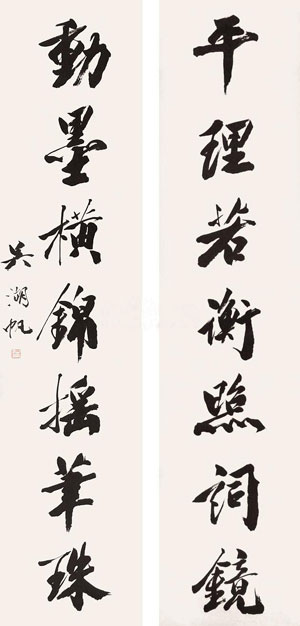 平理若衡照詞鏡
動墨橫錦搖筆珠
吳湖帆